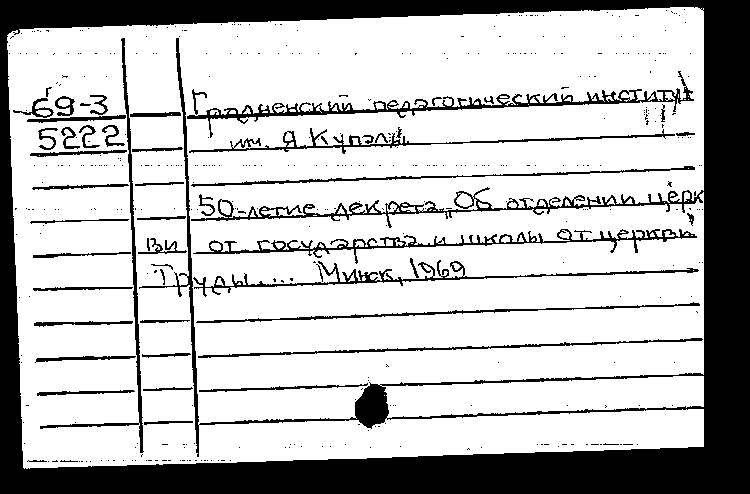 69-3
5222
Гродненский педагогический институт
им. Я. Купалы.
50-летие декрета „Об отделении церк
ви от государства и школы от церкви"
Труды.... Минск, 1969